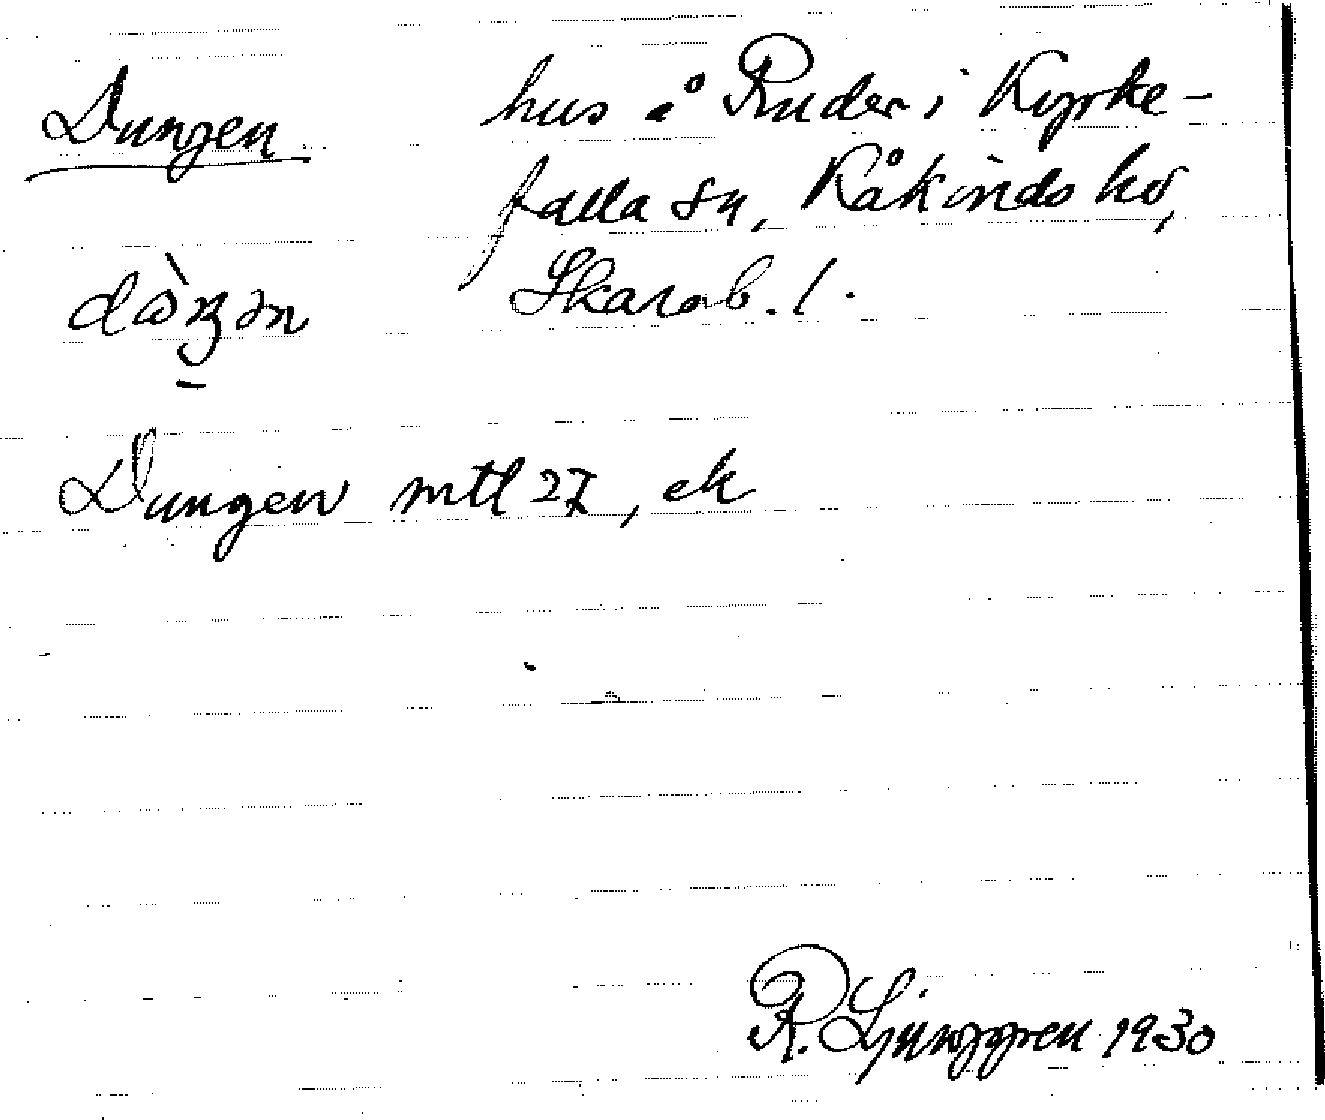 Dungen hus å Ruder i Kyrke-
falla sn, Kåkinds hd,
Skarab. l.
Dungen mtl 27, ek
R. Ljunggren 1930